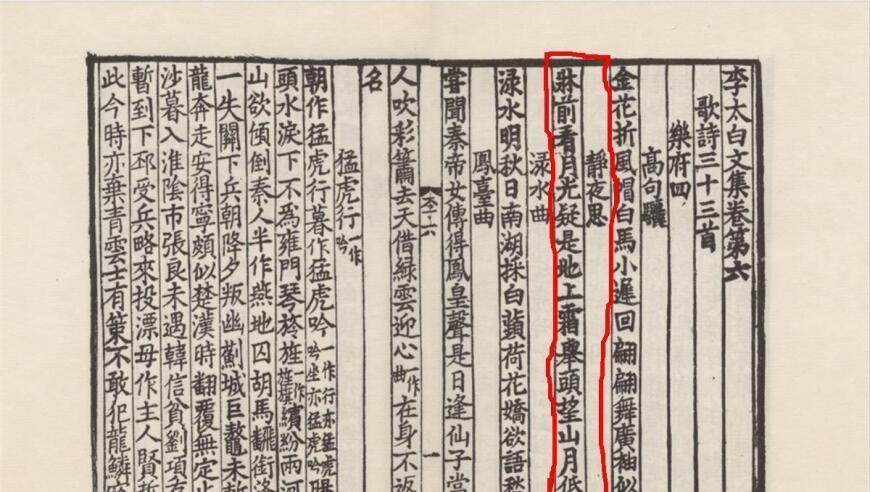 李太白文集卷第六
歌詩三十三首
樂府四
高句驪
金花折風帽白馬小遲回翩翩舞廣袖似
靜夜思
牀前看月光疑是地上霜舉頭望山月低
淥水曲
淥水明秋日南湖採白蘋荷花嬌欲語愁
鳳臺曲
甞聞秦帝女傳得鳳皇聲是日逢仙子當
一
人吹彩簫去天借綠雲迎心一作曲在身不返
名
猛虎行一作吟
朝作猛虎行暮作猛虎吟一作行亦猛虎吟坐亦猛虎吟腸
頭水淚下不為雍門琴旌一作旌旗繽紛兩河
山欲傾倒秦人半作燕地囚胡馬翻銜洛
一失關下兵朝降夕叛幽薊城巨鼇未斬
龍奔走安得寧頗似楚漢時翻覆無定止
沙暮入淮陰市張良未遇韓信貧劉項存
暫到下邳受兵略來投漂母作主人賢哲
此今時亦棄青雲士有策不敢犯龍鱗竄